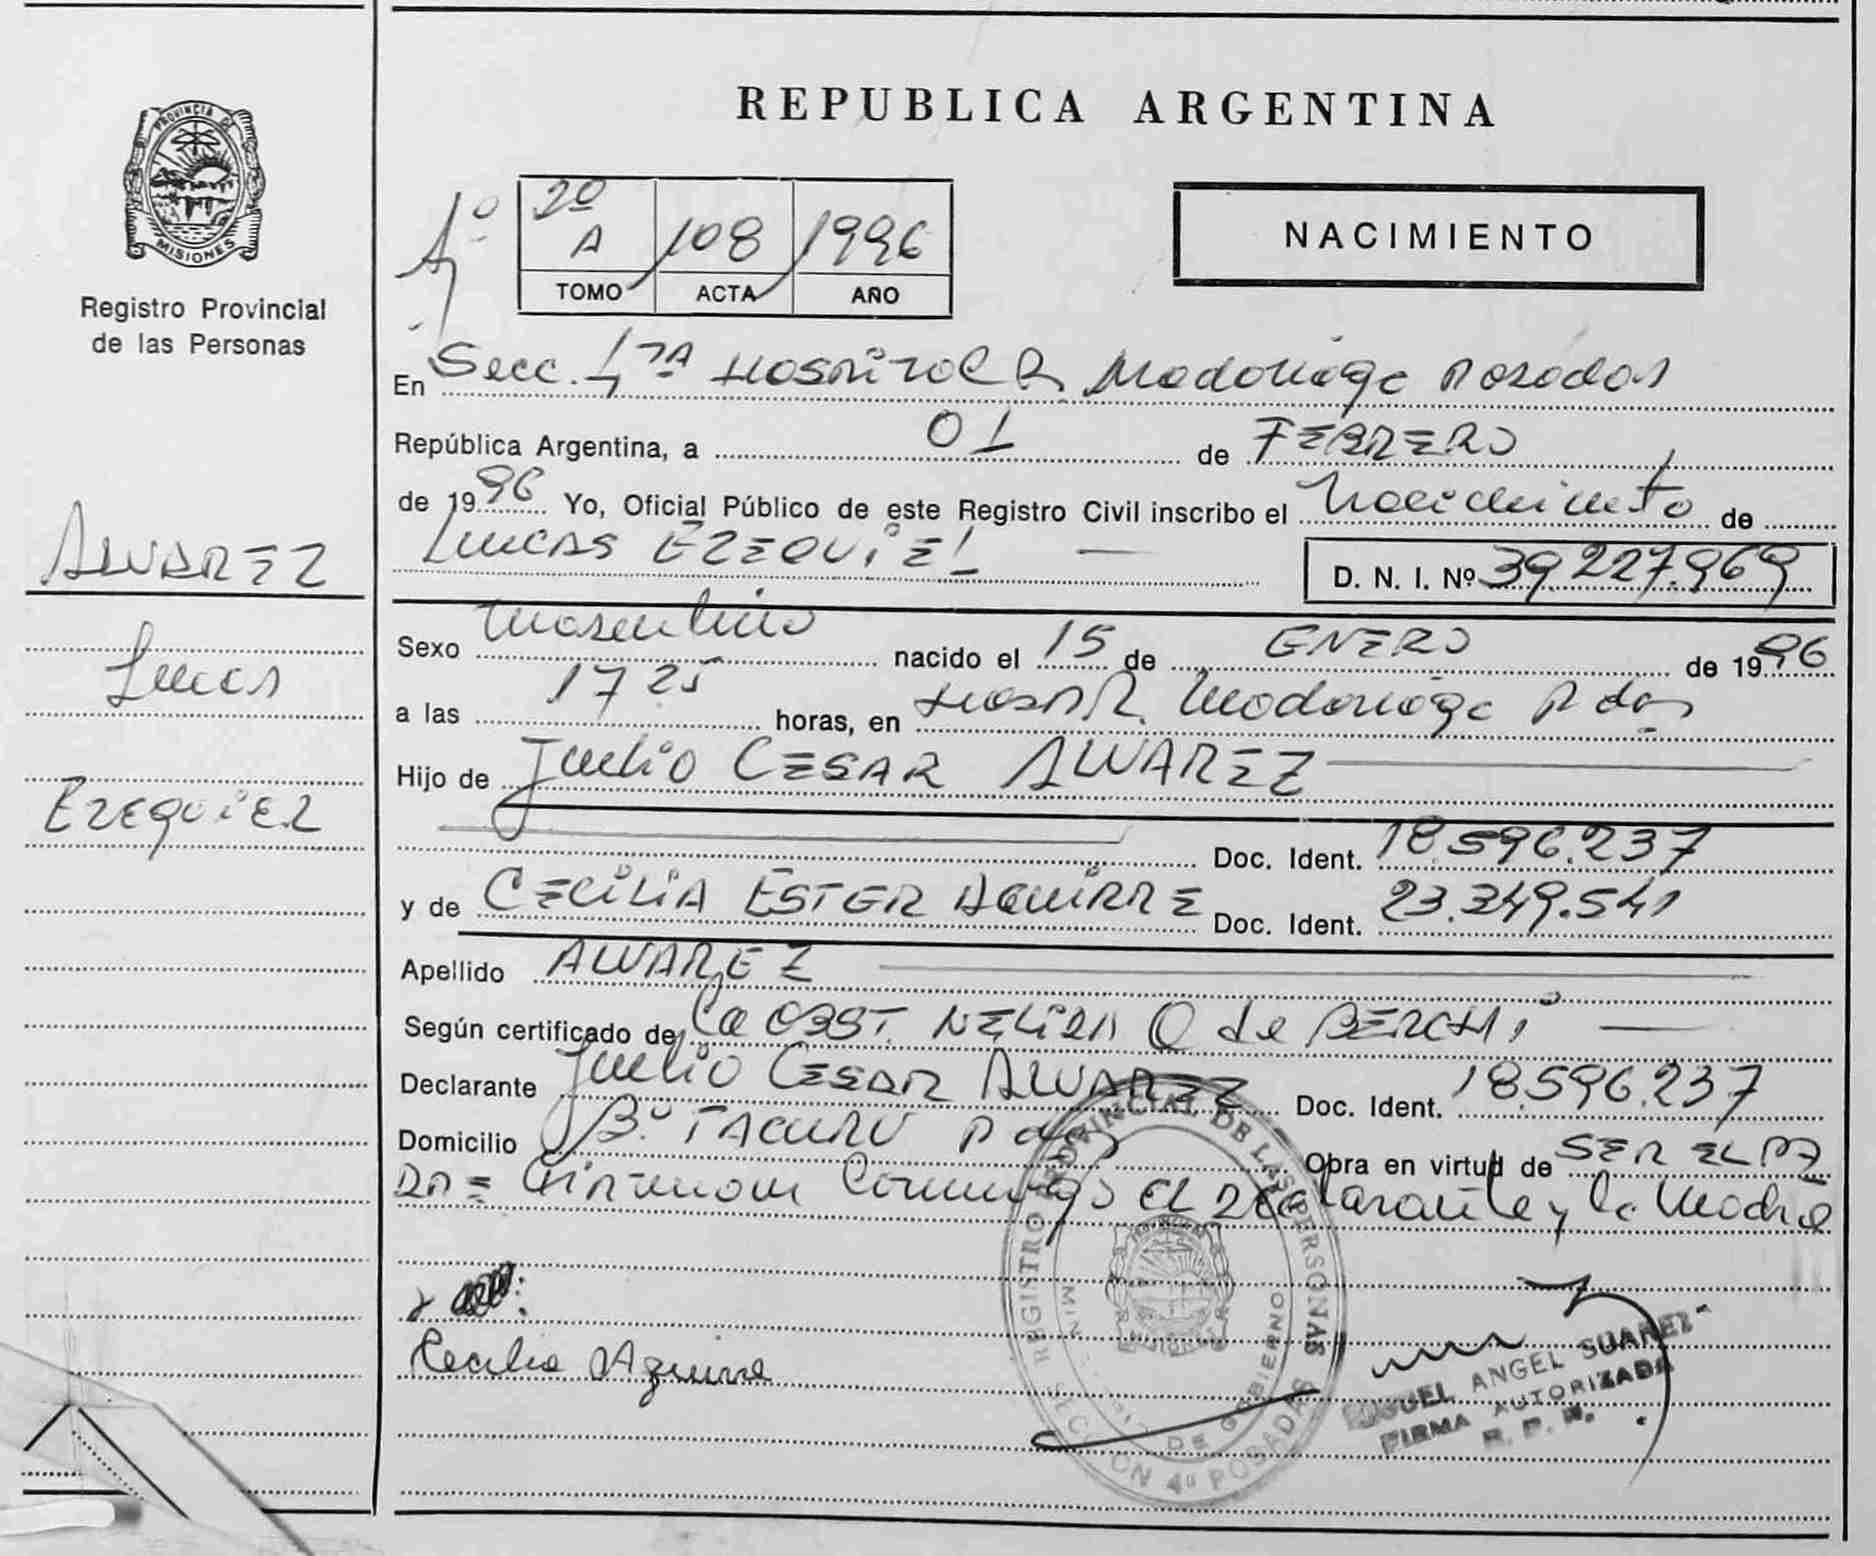 PROVINCIA DE
MISIONES
Registro Provincial
de las Personas
ALVAREZ
Lucas
EZEQUIEL
REPUBLICA ARGENTINA
2º
A 108 1996
TOMO ACTA AÑO
NACIMIENTO
En Secc. 4TA HOSPITAL R. Madariaga Posadas
República Argentina, a 01 de FEBRERO
de 1996 Yo, Oficial Público de este Registro Civil inscribo el Nacimiento de
LUCAS EZEQUIEL — D. N. I. Nº 39.227.969
Sexo Masculino nacido el 15 de ENERO de 1996
a las 17 25 horas, en HOSP. R. Madariaga Pdas
Hijo de Julio CESAR ALVAREZ
Doc. Ident. 18.596.237
y de CECILIA ESTER AGUIRRE Doc. Ident. 23.349.541
Apellido ALVAREZ
Según certificado de la OBST. NELIDA Q de BERCHI —
Declarante Julio CESAR ALVAREZ Doc. Ident. 18.596.237
Domicilio Bº TACURU Pdas Obra en virtud de SER EL PA
DRE = Firman Conmigo EL Declarante y la Madre
Cecilia Aguirre
REGISTRO PROVINCIAL DE LAS PERSONAS
DE GOBIERNO
SECCION 4ª POSADAS
MIGUEL ANGEL SUAREZ
FIRMA AUTORIZADA
R. P. P.